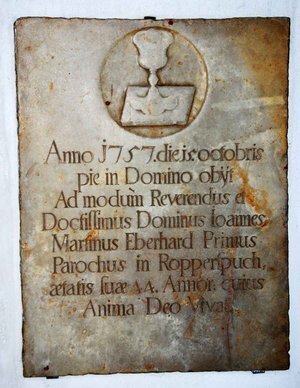 Anno 1757. die 15 octobris
pie in Domino obijt
Ad modum Reverendus et
Doctissimus Dominus Ioannes
Martinus Eberhard Primus
Parochus in Ropperspuch,
ætatis suæ 44. Annor. cuius
Anima Deo Vivat